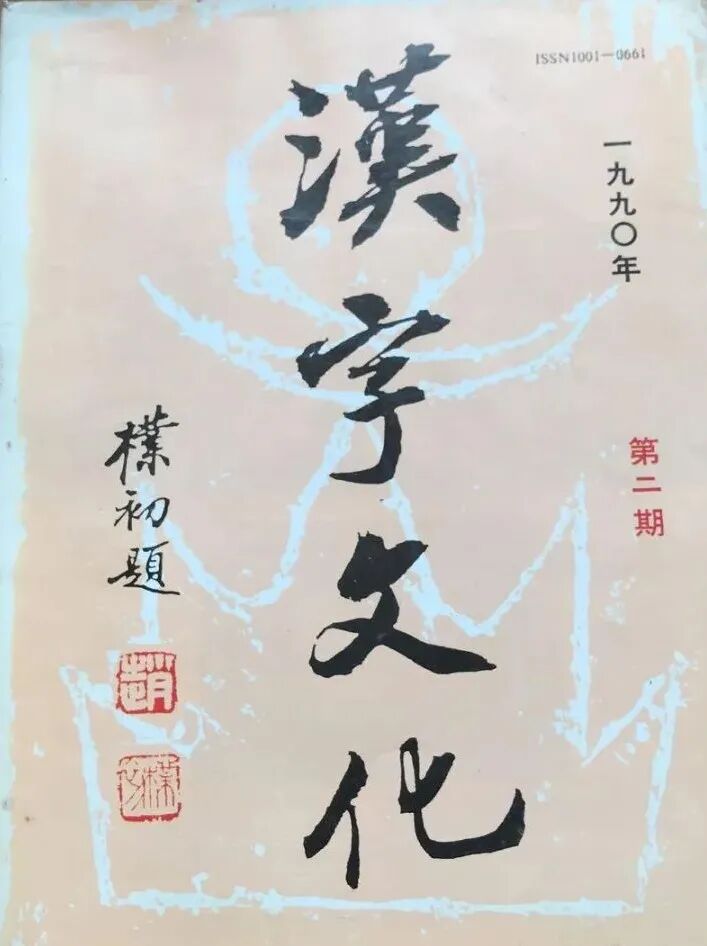 ISSN1001—0661
一九九〇年
第二期
漢字文化
樸初題
趙
樸初